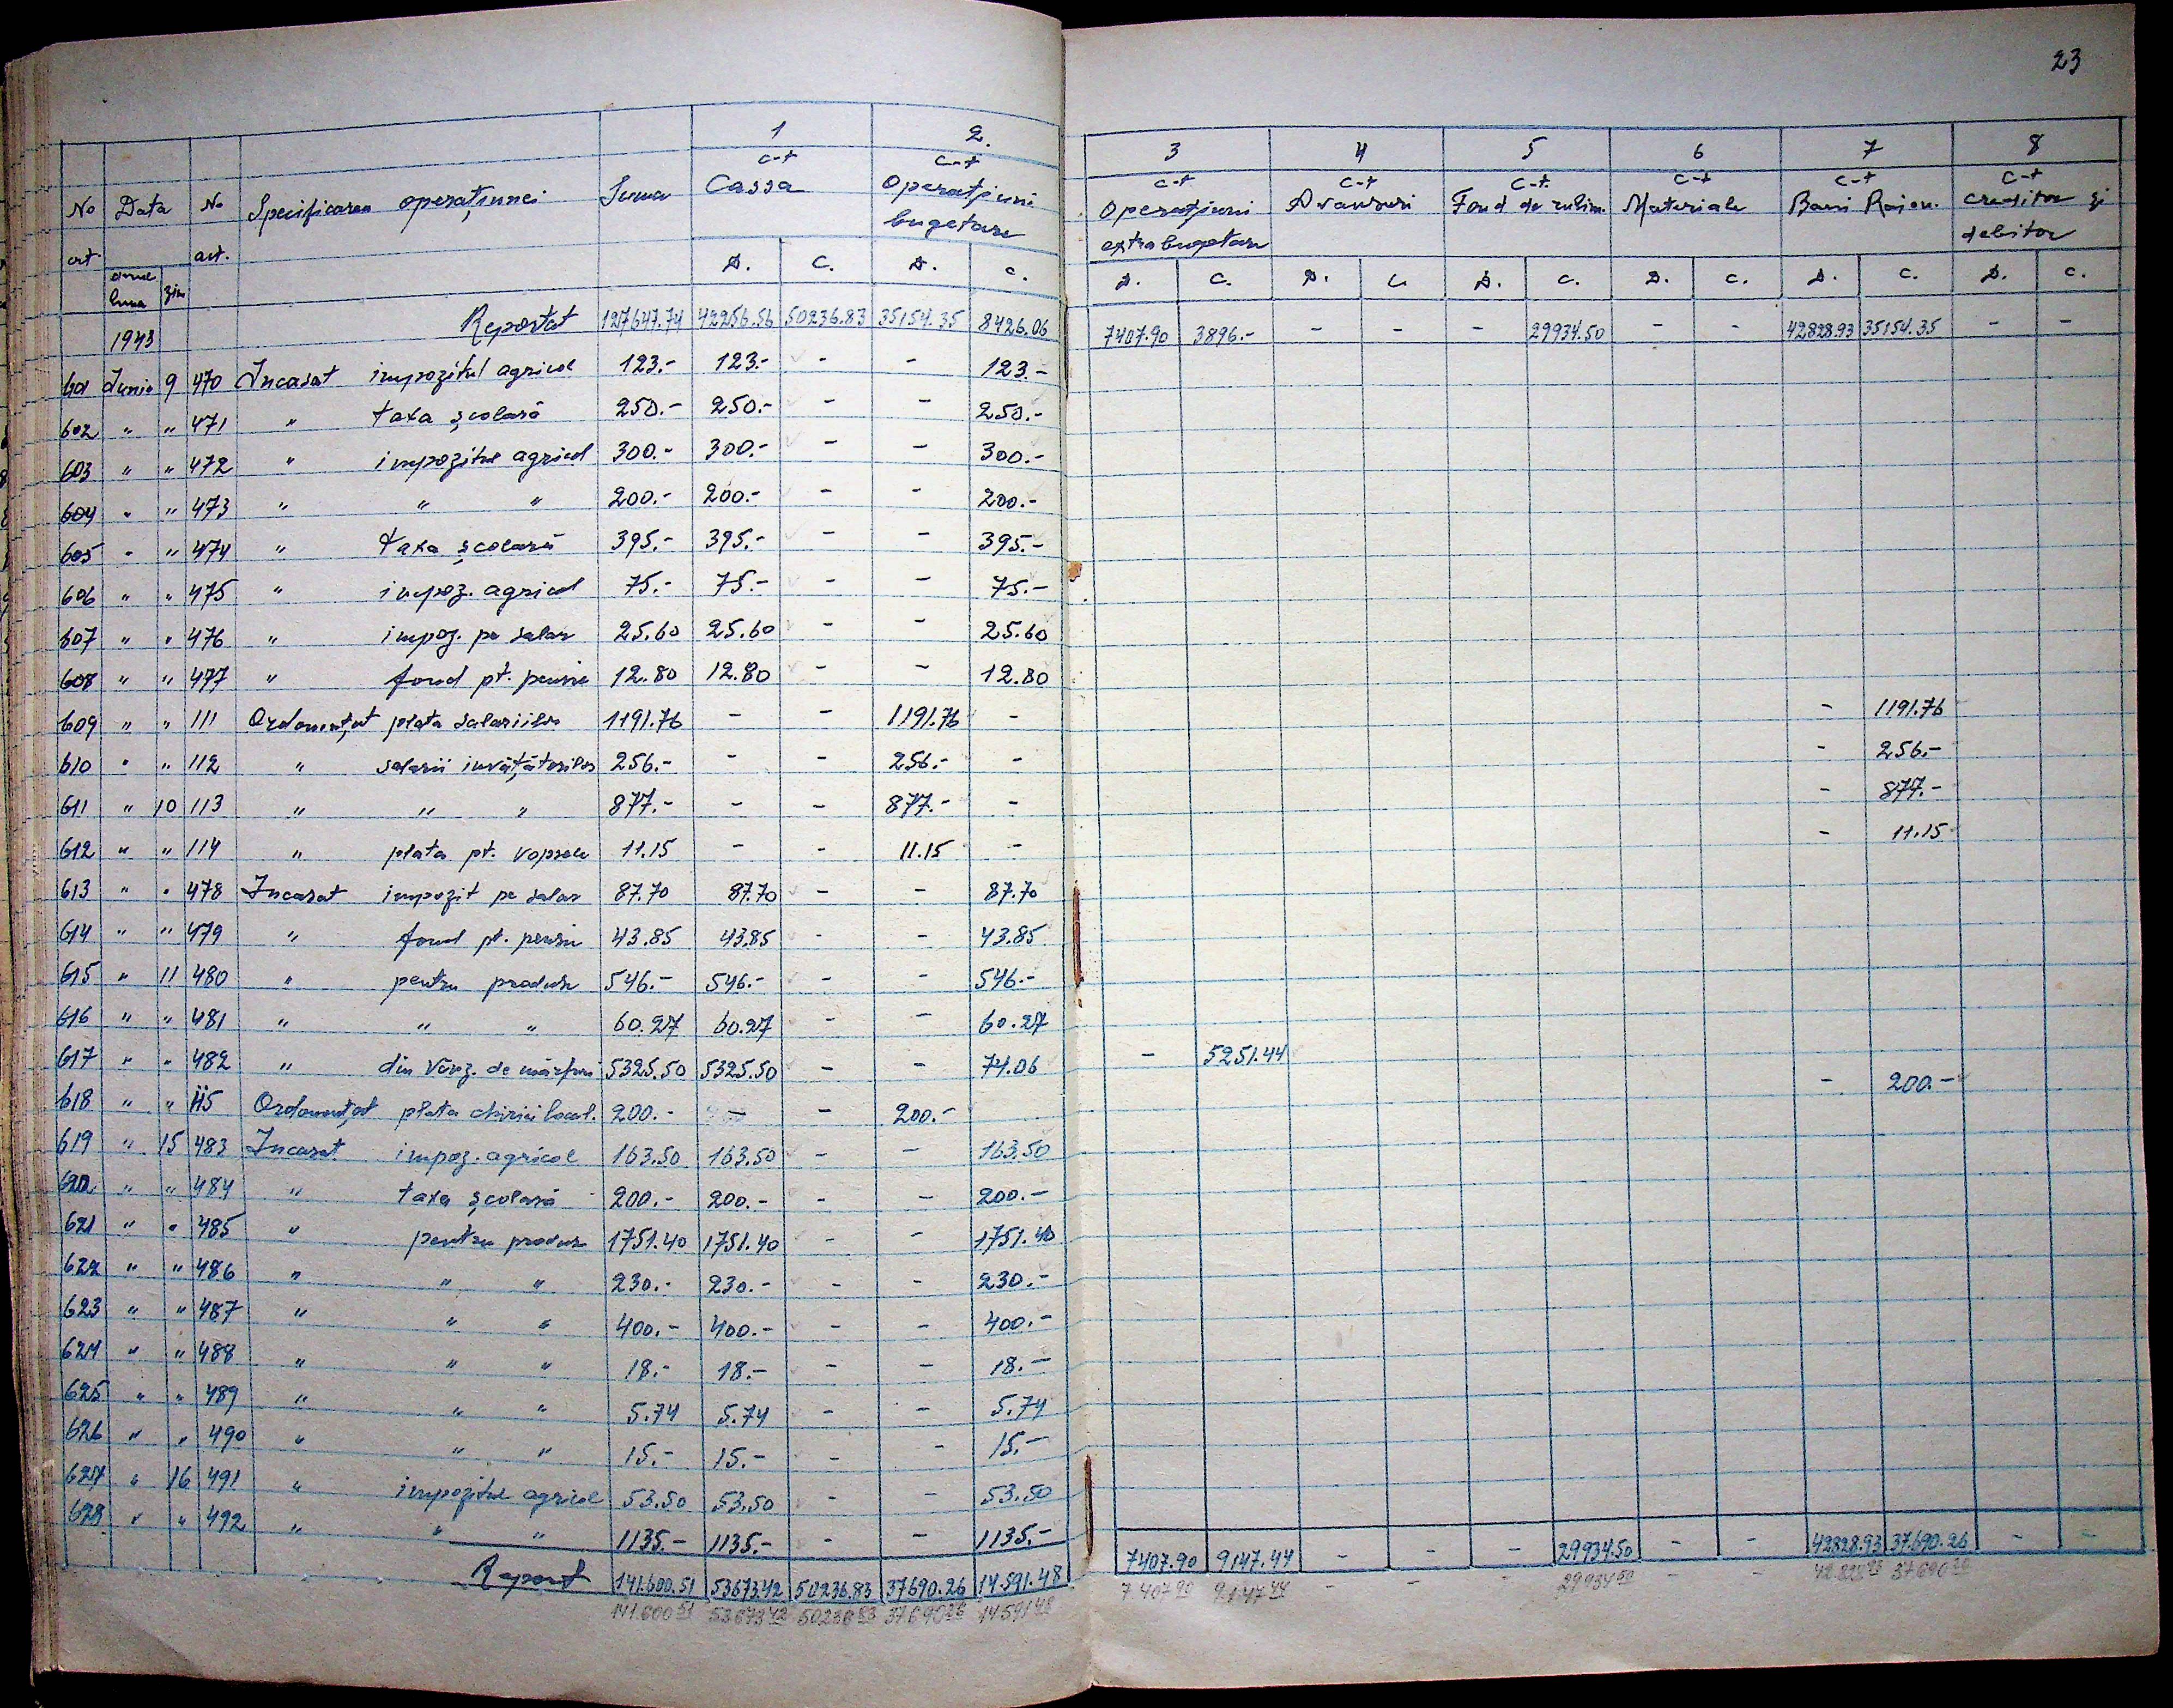 23
1 2. 3 4 5 6 7 8
No crt. Data anul luna ziua No act. Specificarea operațiunei Suma c-t Cassa c-t Operațiuni bugetare c-t Operațiuni extrabugetare c-t Avansuri c-t Fond de rulm. c-t Materiale c-t Bani Raion. c-t creditor și debitor
D. C. D. C. D. C. D. C. D. C. D. C. D. C. D. C.
1943 Reportat 127647.74 42256.56 50236.83 35154.35 8426.06 7407.90 3896.- - - - 29934.50 - - 42828.93 35154.35 - -
601 Iunie 9 470 Incasat impozitul agricol 123.- 123.- - - 123.-
602 " " 471 " taxa școlară 250.- 250.- - - 250.-
603 " " 472 " impozitul agricol 300.- 300.- - - 300.-
604 " " 473 " " " 200.- 200.- - - 200.-
605 " " 474 " taxa școlară 395.- 395.- - - 395.-
606 " " 475 " impoz. agricol 75.- 75.- - - 75.-
607 " " 476 " impoz. pe salar 25.60 25.60 - - 25.60
608 " " 477 " fond pt. pensie 12.80 12.80 - - 12.80
609 " " 111 Ordonanțat plata salariilor 1191.76 - - 1191.76 - - 1191.76
610 " " 112 " salarii invățătorilor 256.- - - 256.- - - 256.-
611 " 10 113 " " " 877.- - - 877.- - - 877.-
612 " " 114 " plata pt. vopsele 11.15 - - 11.15 - - 11.15
613 " " 478 Incasat impozit pe salar 87.70 87.70 - - 87.70
614 " " 479 " fond pt. pensie 43.85 43.85 - - 43.85
615 " 11 480 " pentru produse 546.- 546.- - - 546.-
616 " " 481 " " " 60.27 60.27 - - 60.27
617 " " 482 " din vânz. de mărfuri 5325.50 5325.50 - - 74.06 - 5251.44
618 " " 115 Ordonanțat plata chiriei local. 200.- - - 200.- - 200.-
619 " 15 483 Incasat impoz. agricol 163.50 163.50 - - 163.50
620 " " 484 " taxa școlară 200.- 200.- - - 200.-
621 " " 485 " pentru produse 1751.40 1751.40 - - 1751.40
622 " " 486 " " " 230.- 230.- - - 230.-
623 " " 487 " " " 400.- 400.- - - 400.-
624 " " 488 " " " 18.- 18.- - - 18.-
625 " " 489 " " " 5.74 5.74 - - 5.74
626 " " 490 " " " 15.- 15.- - - 15.-
627 " 16 491 " impozitul agricol 53.50 53.50 - - 53.50
628 " " 492 " " " 1135.- 1135.- - - 1135.-
Report 141.600.51 53673.42 50236.83 37690.26 14.591.48 7407.90 9147.44 - - - 29934.50 - - 42828.93 37.690.26 - -
141.600 51 53673 42 50236 83 37690 26 14591 48 7407 90 9147 44 - - - 29934 50 - - 42.828 93 37690 26